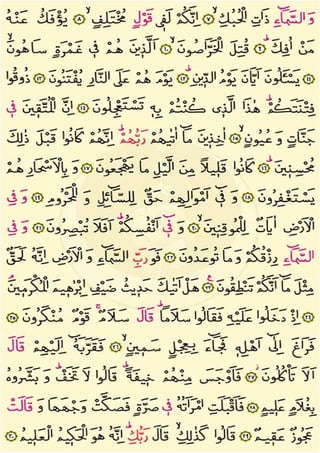 وَ السَّمَآءِ ذَاتِ الْحُبُكِ ۷ اِنَّكُمْ لَفٖى قَوْلٍ مُخْتَلِفٍ ۸ يُؤْفَكُ عَنْهُ
مَنْ اُفِكَ ۹ قُتِلَ الْخَرَّاصُونَ ۱۰ اَلَّذٖينَ هُمْ فٖى غَمْرَةٍ سَاهُونَ
۱۱ يَسْـَٔلُونَ اَيَّانَ يَوْمُ الدّٖينِ ۱۲ يَوْمَ هُمْ عَلَى النَّارِ يُفْتَنُونَ ۱۳ ذُوقُوا
فِتْنَتَكُمْ هٰذَا الَّذٖى كُنْتُمْ بِهٖ تَسْتَعْجِلُونَ ۱۴ اِنَّ الْمُتَّقٖينَ فٖى
جَنَّاتٍ وَ عُيُونٍ ۱۵ اٰخِذٖينَ مَآ اٰتٰيهُمْ رَبُّهُمْ اِنَّهُمْ كَانُوا قَبْلَ ذٰلِكَ
مُحْسِنٖينَ ۱۶ كَانُوا قَلٖيلًا مِنَ الَّيْلِ مَا يَهْجَعُونَ ۱۷ وَ بِالْاَسْحَارِ هُمْ
يَسْتَغْفِرُونَ ۱۸ وَ فٖٓى اَمْوَالِهِمْ حَقٌّ لِلسَّآئِلِ وَ الْمَحْرُومِ ۱۹ وَ فِى
الْاَرْضِ اٰيَاتٌ لِلْمُوقِنٖينَ ۲۰ وَ فٖٓى اَنْفُسِكُمْ اَفَلَا تُبْصِرُونَ ۲۱ وَ فِى
السَّمَآءِ رِزْقُكُمْ وَ مَا تُوعَدُونَ ۲۲ فَوَرَبِّ السَّمَآءِ وَ الْاَرْضِ اِنَّهُ لَحَقٌّ
مِثْلَ مَآ اَنَّكُمْ تَنْطِقُونَ ۲۳ هَلْ اَتٰيكَ حَدٖيثُ ضَيْفِ اِبْرٰهٖيمَ الْمُكْرَمٖينَ
۲۴ اِذْ دَخَلُوا عَلَيْهِ فَقَالُوا سَلَامًا قَالَ سَلَامٌ قَوْمٌ مُنْكَرُونَ ۲۵
فَرَاغَ اِلٰٓى اَهْلِهٖ فَجَآءَ بِعِجْلٍ سَمٖينٍ ۲۶ فَقَرَّبَهُٓ اِلَيْهِمْ قَالَ
اَلَا تَاْكُلُونَ ۲۷ فَاَوْجَسَ مِنْهُمْ خٖيفَةً قَالُوا لَا تَخَفْ وَ بَشَّرُوهُ
بِغُلَامٍ عَلٖيمٍ ۲۸ فَاَقْبَلَتِ امْرَاَتُهُ فٖى صَرَّةٍ فَصَكَّتْ وَجْهَهَا وَ قَالَتْ
عَجُوزٌ عَقٖيمٌ ۲۹ قَالُوا كَذٰلِكِ قَالَ رَبُّكِ اِنَّهُ هُوَ الْحَكٖيمُ الْعَلٖيمُ ۳۰